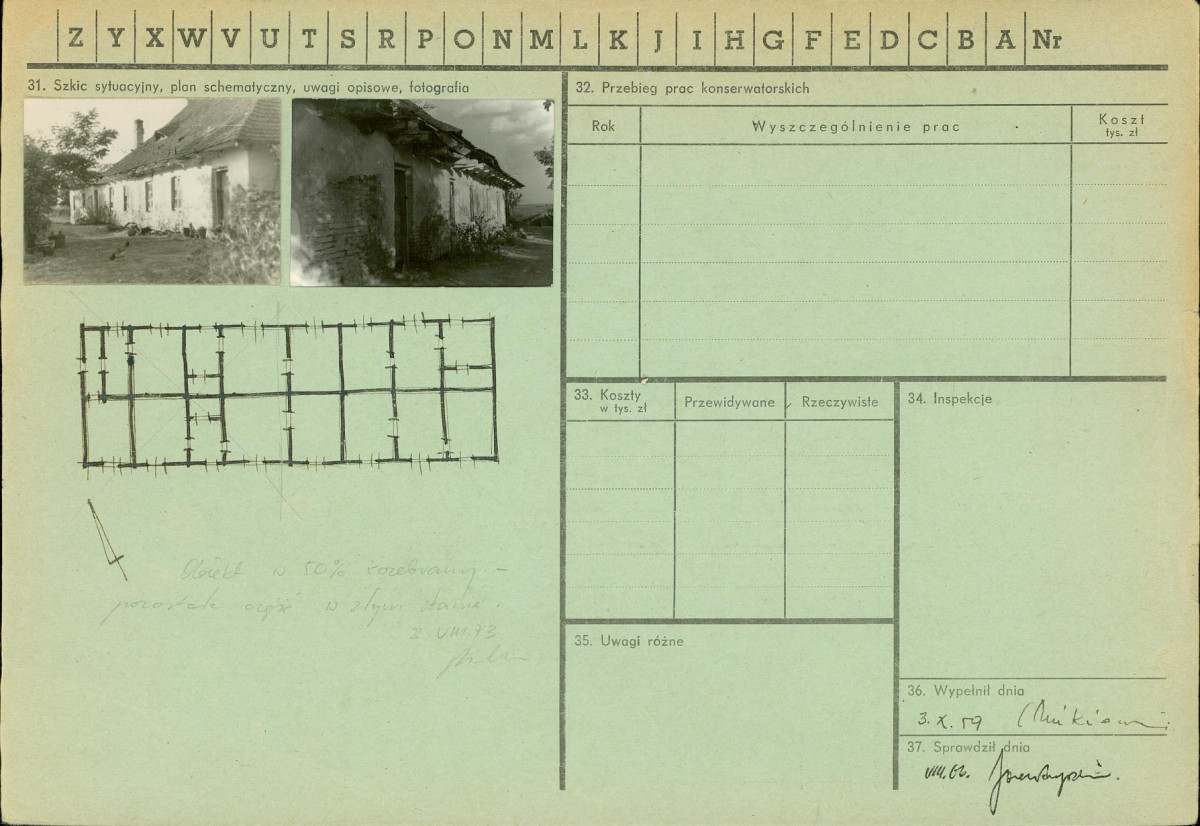 Z Y X W V U T S R P O N M L K J I H G F E D C B A Nr
31. Szkic sytuacyjny, plan schematyczny, uwagi opisowe, fotografia
Obiekt w 50% rozebrany –
pozostała część w złym stanie.
VIII.73
32. Przebieg prac konserwatorskich
Rok
Wyszczególnienie prac
Koszt
tys. zł
33. Koszty
w tys. zł
Przewidywane
Rzeczywiste
34. Inspekcje
35. Uwagi różne
36. Wypełnił dnia
3. X. 59
37. Sprawdził dnia
VIII.62.